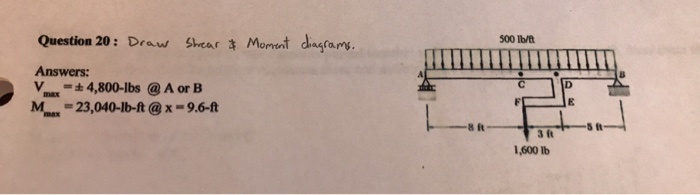 Question 20: Draw Shear & Moment diagrams.
Answers:
V max = ± 4,800-lbs @ A or B
M max = 23,040-lb-ft @ x = 9.6-ft
500 lb/ft
A
B
C
D
F
E
8 ft
3 ft
5 ft
1,600 lb